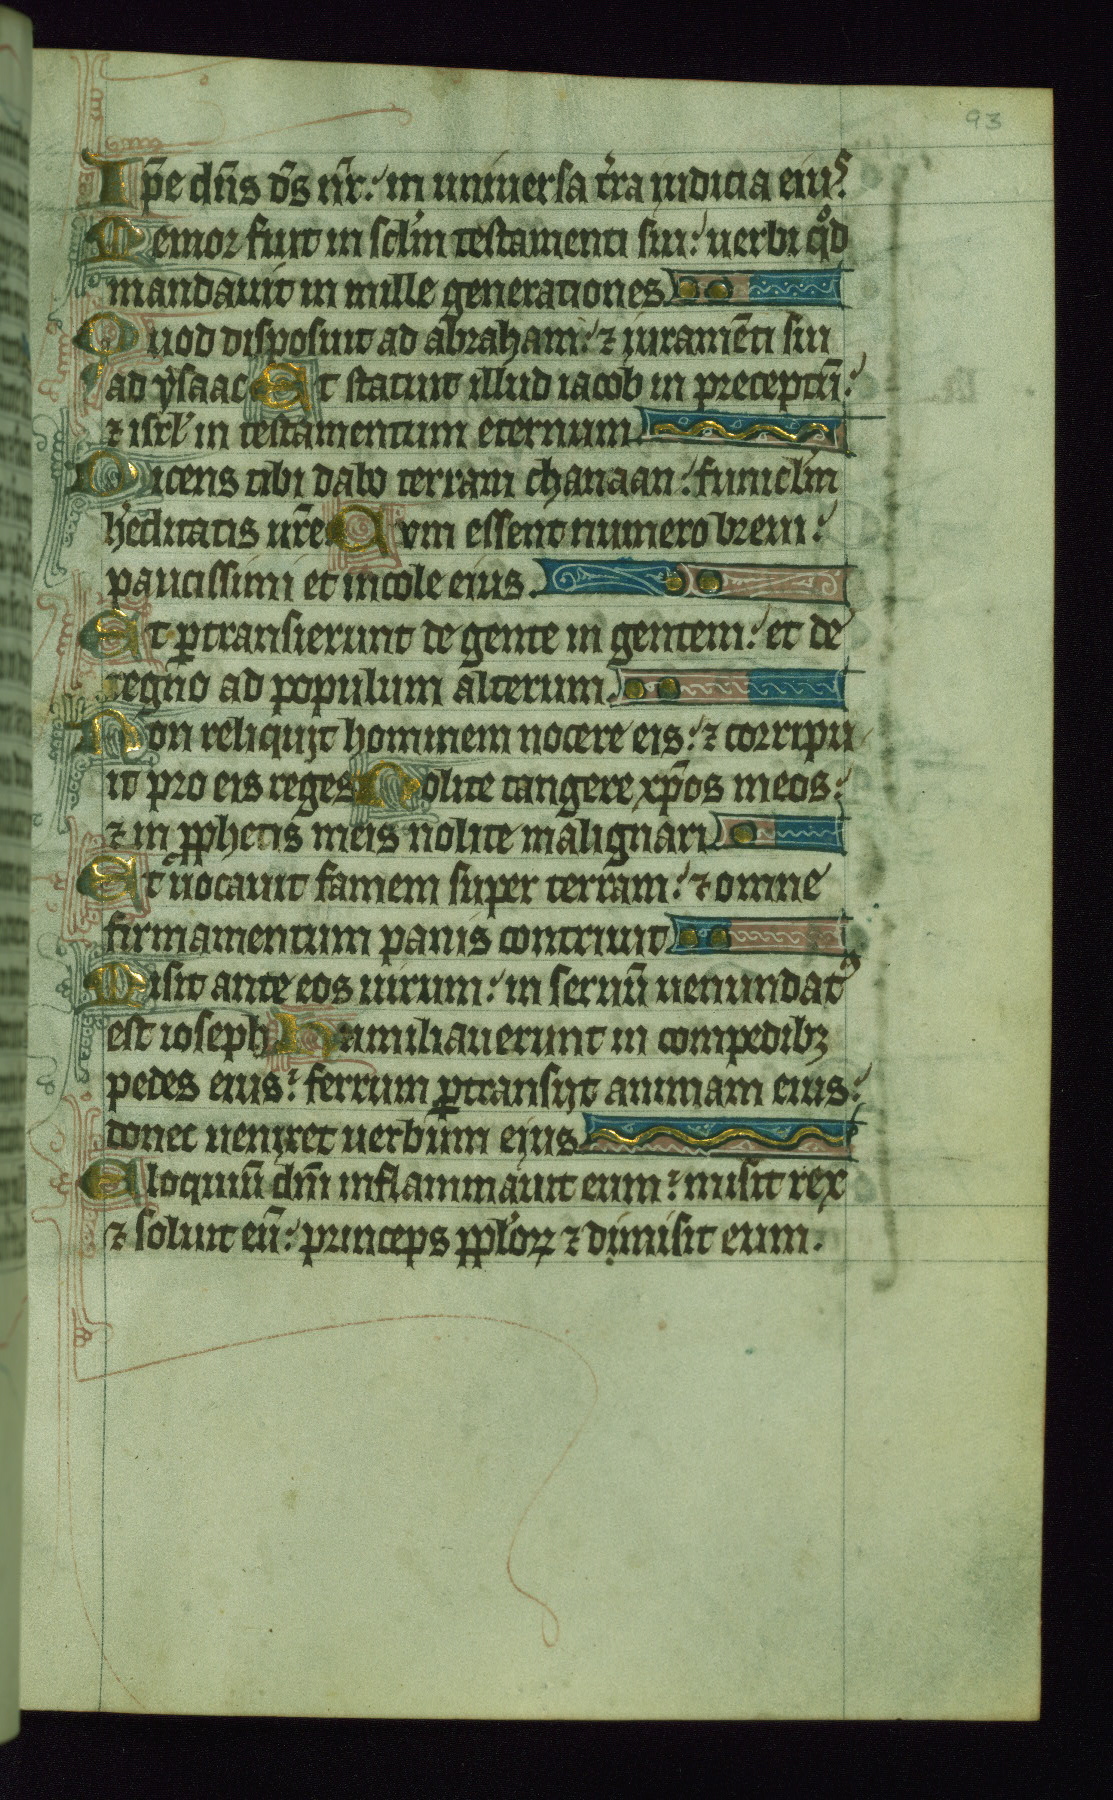 93
Ip̄e dn̄s d̄s nr̄: in uniuersa t'ra iudicia eiuꝰ.
Memor fuit in sclm̄ testamenti sui: uerbi qͦd
mandauit in mille generationes
Quod disposuit ad abraham: ⁊ iuramēti sui
ad ysaac Et statuit illud iacob in preceptū:
⁊ isrl' in testamentum eternum
Dicens tibi dabo terram chanaan: funiclm̄
h'editatis ur̄e Cvm essent numero breui:
paucissimi et incole eius.
Et ꝑtransierunt de gente in gentem: et de
regno ad populum alterum.
Non reliquit hominem nocere eis: ⁊ corripu
it pro eis reges Nolite tangere xp̄os meos:
⁊ in ꝓphetis meis nolite malignari
Et uocauit famem super terram: ⁊ omne
firmamentum panis contriuit
Misit ante eos uirum: in seruū uenundatꝰ
est ioseph Humiliauerunt in compedibꝫ
pedes eius: ferrum ꝑtransijt animam eius:
donec ueniret uerbum eius
Eloquiū dn̄i inflammauit eum: misit rex
⁊ soluit eū: princeps ppl'oꝝ ⁊ dimisit eum.